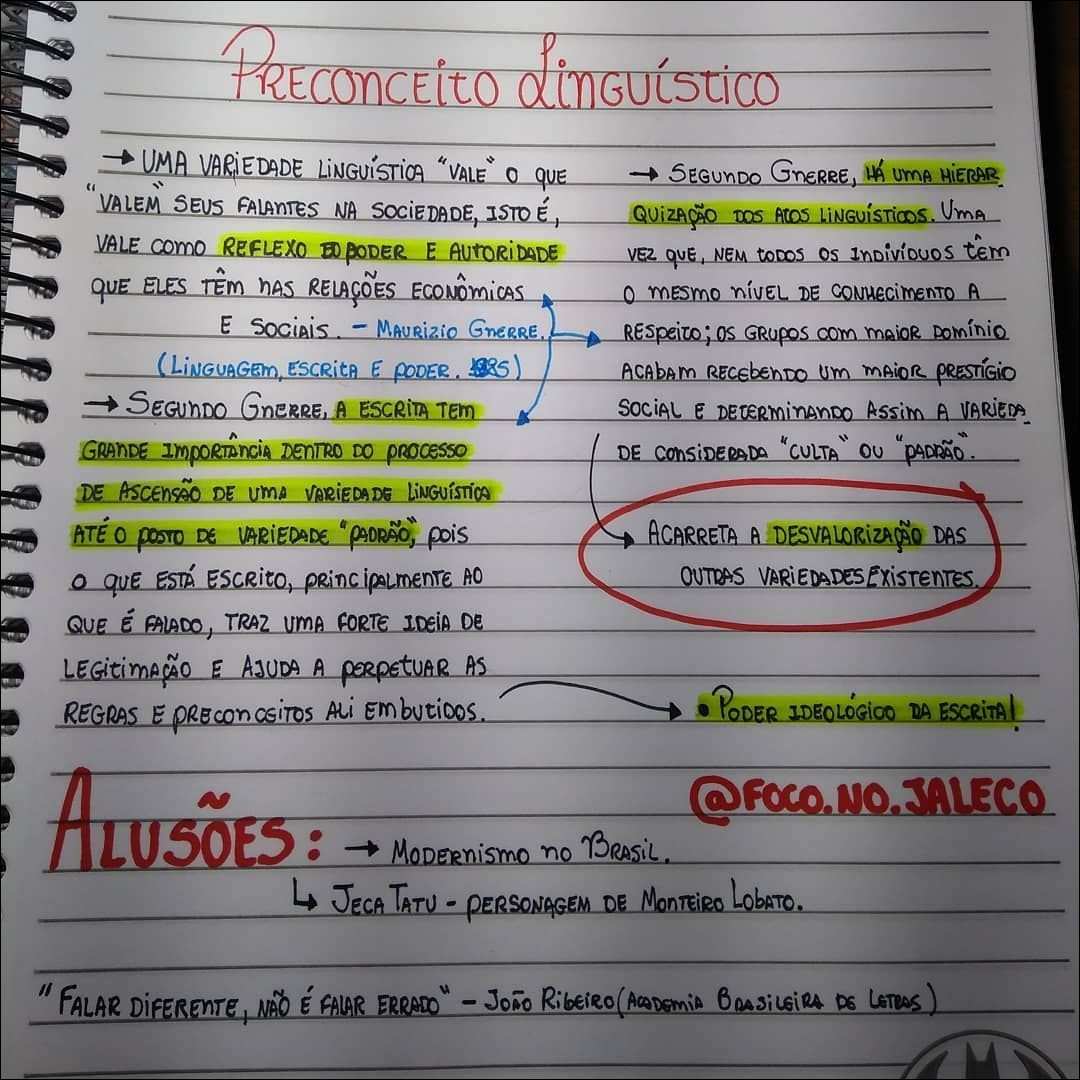 PRECONCEITO LINGUÍSTICO
→ UMA VARIEDADE LINGUÍSTICA "VALE" O QUE
"VALEM" SEUS FALANTES NA SOCIEDADE, ISTO É,
VALE COMO REFLEXO DO PODER E AUTORIDADE
QUE ELES TÊM NAS RELAÇÕES ECONÔMICAS
E SOCIAIS. - MAURIZIO GNERRE.
(LINGUAGEM, ESCRITA E PODER. 1985)
→ SEGUNDO GNERRE, A ESCRITA TEM
GRANDE IMPORTÂNCIA DENTRO DO PROCESSO
DE ASCENSÃO DE UMA VARIEDADE LINGUÍSTICA
ATÉ O POSTO DE VARIEDADE "PADRÃO", POIS
O QUE ESTÁ ESCRITO, PRINCIPALMENTE AO
QUE É FALADO, TRAZ UMA FORTE IDEIA DE
LEGITIMAÇÃO E AJUDA A PERPETUAR AS
REGRAS E PRECONCEITOS ALI EMBUTIDOS.
→ SEGUNDO GNERRE, HÁ UMA HIERAR
QUIZAÇÃO DOS ATOS LINGUÍSTICOS. UMA
VEZ QUE, NEM TODOS OS INDIVÍDUOS TÊM
O MESMO NÍVEL DE CONHECIMENTO A
RESPEITO; OS GRUPOS COM MAIOR DOMÍNIO
ACABAM RECEBENDO UM MAIOR PRESTÍGIO
SOCIAL E DETERMINANDO ASSIM A VARIEDA
DE CONSIDERADA "CULTA" OU "PADRÃO".
ACARRETA A DESVALORIZAÇÃO DAS
OUTRAS VARIEDADES EXISTENTES.
• PODER IDEOLÓGICO DA ESCRITA!
@FOCO.NO.JALECO
ALUSÕES: → MODERNISMO NO BRASIL.
↳ JECA TATU - PERSONAGEM DE MONTEIRO LOBATO.
"FALAR DIFERENTE, NÃO É FALAR ERRADO" - JOÃO RIBEIRO (ACADEMIA BRASILEIRA DE LETRAS)